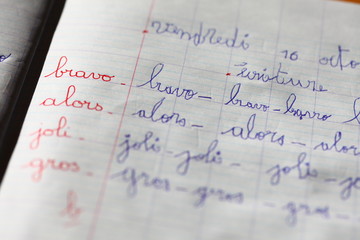 vendredi 10 octo
écriture
bravo - bravo - bravo - bravo
alors - alors - alors - alors
joli - joli - joli - joli - joli
gros - gros - gros - gros -
b